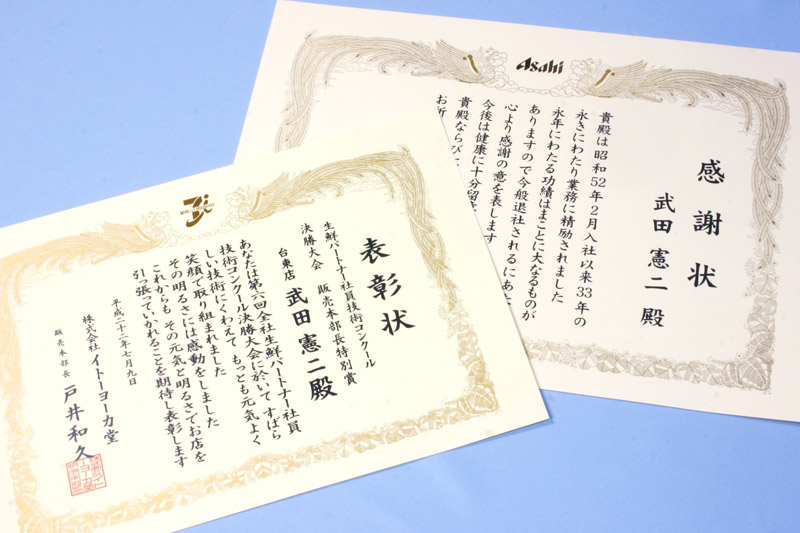 Asahi
感謝状
武田 憲二 殿
貴殿は昭和52年2月入社以来33年の
永きにわたり業務に精励されました
永年にわたる功績はまことに大なるものが
ありますので今般退社されるにあた
心より感謝の意を表します
今後は健康に十分留
貴殿ならびに
お祈
表彰状
生鮮パートナー社員技術コンクール
決勝大会 販売本部長特別賞
台東店 武田 憲二殿
あなたは第六回全社生鮮パートナー社員
技術コンクール決勝大会に於いて すばら
しい技術にくわえて もっとも元気よく
笑顔で取り組まれました
その明るさには感動をしました
これからも その元気と明るさでお店を
引っ張っていかれることを期待し表彰します
平成二十二年七月九日
株式会社イトーヨーカ堂
販売本部長 戸井和久